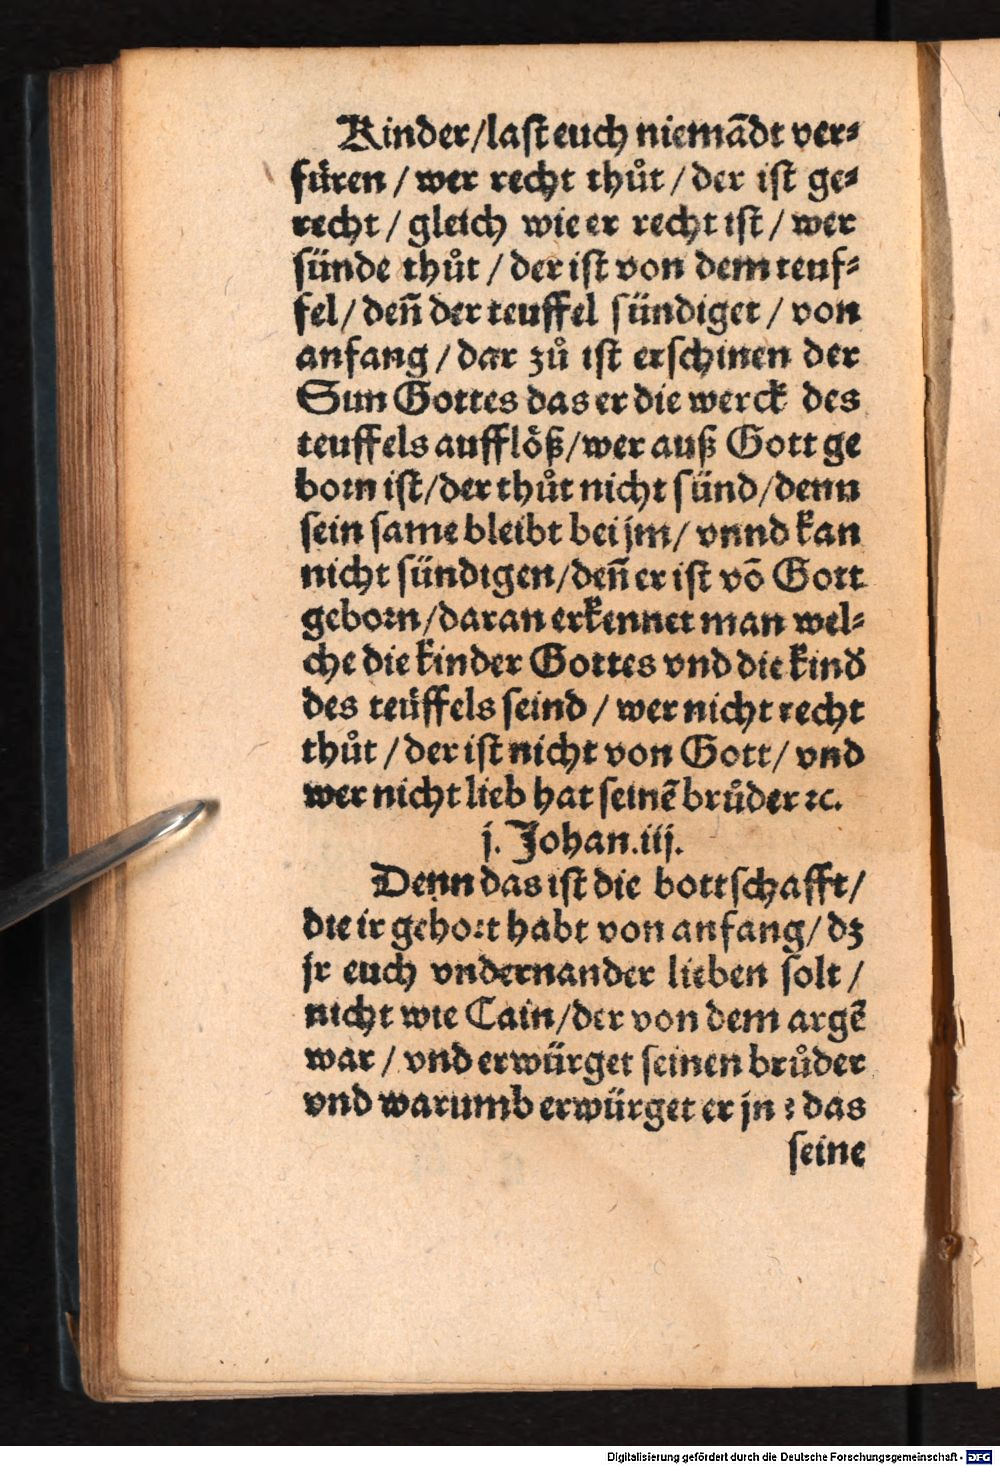 Kinder/last euch niemādt ver⸗
füren / wer recht thůt / der ist ge⸗
recht / gleich wie er recht ist / wer
sünde thůt / der ist von dem teuf⸗
fel / deñ der teuffel sündiget / von
anfang / dar zů ist erschinen der
Sun Gottes das er die werck des
teuffels aufflöß/wer auß Gott ge
born ist/der thůt nicht sünd/denn
sein same bleibt bei jm/ vnnd kan
nicht sündigen/deñ er ist vō Gott
geborn/daran erkennet man wel⸗
che die kinder Gottes vnd die kind
des teüffels seind / wer nicht recht
thůt / der ist nicht von Gott/ vnd
wer nicht lieb hat seinē brůder ꝛc.
j. Johan.iij.
Denn das ist die bottschafft/
die ir gehort habt von anfang/ dz
jr euch vndernander lieben solt /
nicht wie Cain/der von dem argē
war / vnd erwürget seinen brůder
vnd warumb erwürget er jn ? das
seine
Digitalisierung gefördert durch die Deutsche Forschungsgemeinschaft - DFG